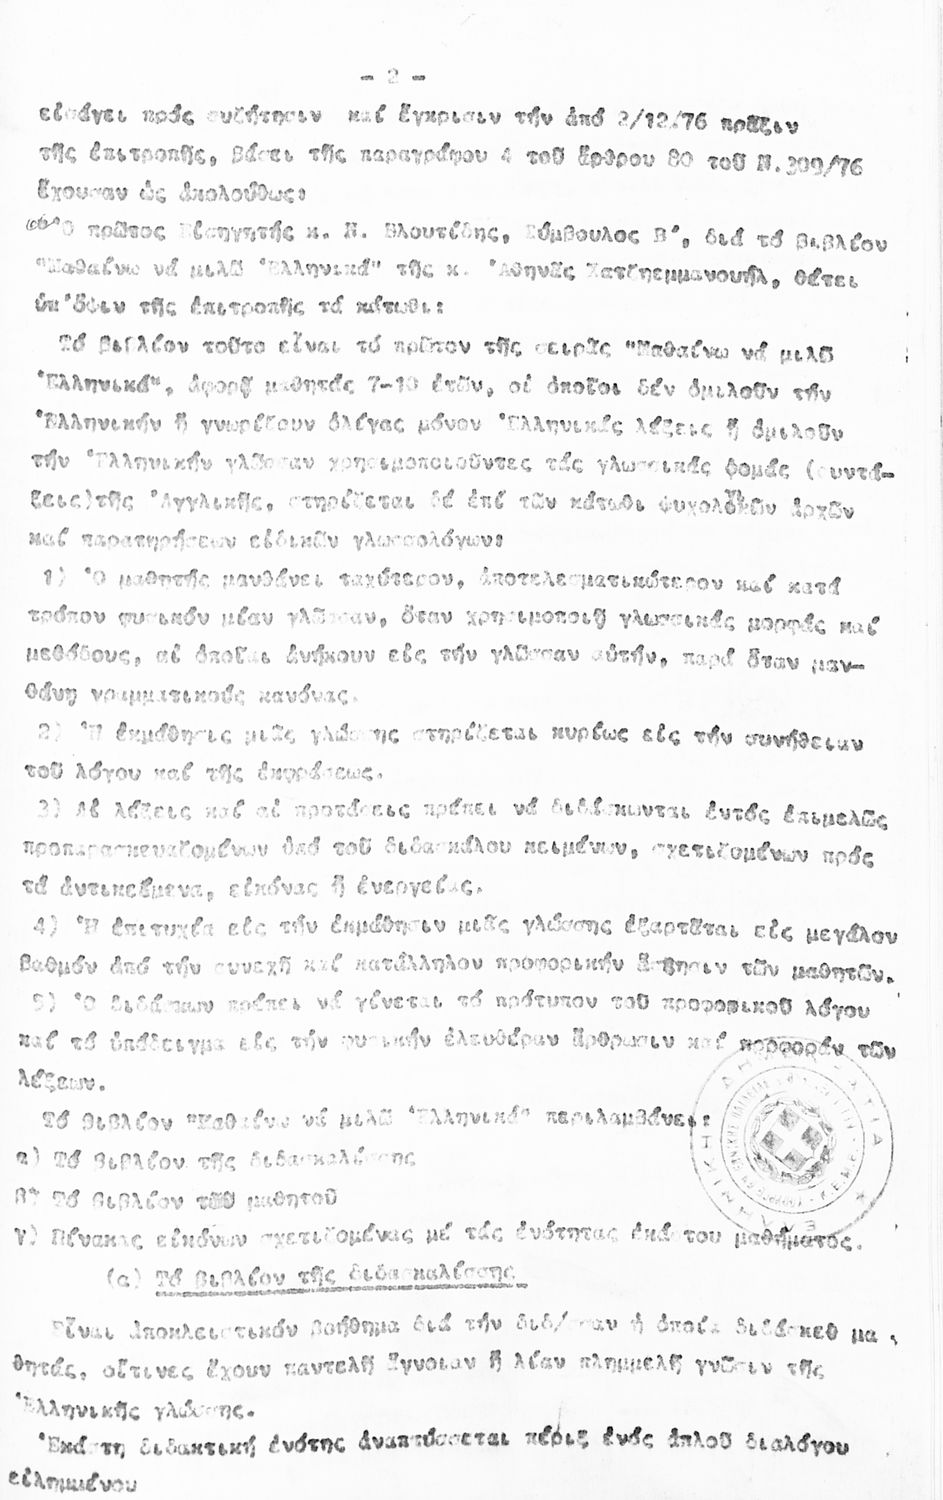 - 2 -
εἰσάγει πρός συζήτησιν καί ἔγκρισιν τήν ἀπό 2/12/76 πρᾶξιν
τῆς ἐπιτροπῆς, βάσει τῆς παραγράφου 4 τοῦ ἄρθρου 80 τοῦ Ν.309/76
ἔχουσαν ὡς ἀκολούθως:
Ὁ πρῶτος Εἰσηγητής κ. Ν. Βλουτίδης, Σύμβουλος Β΄, διά τό βιβλίον
"Μαθαίνω νά μιλῶ Ἑλληνικά" τῆς κ. Ἀθηνᾶς Χατζηεμμανουήλ, θέτει
ὑπ'ὄψιν τῆς ἐπιτροπῆς τά κάτωθι:
Τό βιβλίον τοῦτο εἶναι τό πρῶτον τῆς σειρᾶς "Μαθαίνω νά μιλῶ
Ἑλληνικά", ἀφορᾷ μαθητάς 7-10 ἐτῶν, οἱ ὁποῖοι δέν ὁμιλοῦν τήν
Ἑλληνικήν ἤ γνωρίζουν ὀλίγας μόνον Ἑλληνικάς λέξεις ἤ ὁμιλοῦν
τήν Ἑλληνικήν γλῶσσαν χρησιμοποιοῦντες τάς γλωσσικάς φομάς (συντά-
ξεις)τῆς Ἀγγλικῆς, στηρίζεται δέ ἐπί τῶν κάτωθι ψυχολογικῶν ἀρχῶν
καί παρατηρήσεων εἰδικῶν γλωσσολόγων:
1) Ὁ μαθητής μανθάνει ταχύτερον, ἀποτελεσματικώτερον καί κατά
τρόπον φυσικόν μίαν γλῶσσαν, ὅταν χρησιμοποιῇ γλωσσικάς μορφάς καί
μεθόδους, αἱ ὁποῖαι ἀνήκουν εἰς τήν γλῶσσαν αὐτήν, παρά ὅταν μαν-
θάνῃ γραμματικούς κανόνας.
2) Ἡ ἐκμάθησις μιᾶς γλώσσης στηρίζεται κυρίως εἰς τήν συνήθειαν
τοῦ λόγου καί τῆς ἐκφράσεως.
3) Αἱ λέξεις καί αἱ προτάσεις πρέπει νά διδάσκωνται ἐντός ἐπιμελῶς
προπαρασκευαζομένων ὑπό τοῦ διδασκάλου κειμένων, σχετιζομένων πρός
τά ἀντικείμενα, εἰκόνας ἤ ἐνεργείας.
4) Ἡ ἐπιτυχία εἰς τήν ἐκμάθησιν μιᾶς γλώσσης ἐξαρτᾶται εἰς μεγάλον
βαθμόν ἀπό τήν συνεχῆ καί κατάλληλον προφορικήν ἄσκησιν τῶν μαθητῶν.
5) Ὁ διδάσκων πρέπει νά γίνεται τό πρότυπον τοῦ προφορικοῦ λόγου
καί τό ὑπόδειγμα εἰς τήν φυσικήν ἐλευθέραν ἄρθρωσιν καί προφοράν τῶν
λέξεων.
Τό βιβλίον "Μαθαίνω νά μιλῶ Ἑλληνικά" περιλαμβάνει:
α) Τό βιβλίον τῆς διδασκαλίσσης
β) Τό βιβλίον τοῦ μαθητοῦ
γ) Πίνακας εἰκόνων σχετιζομένας μέ τάς ἐνότητας ἑκάστου μαθήματος.
(α) Τό βιβλίον τῆς διδασκαλίσσης
Εἶναι ἀποκλειστικόν βοήθημα διά τήν διδ/σσαν ἡ ὁποία διδάσκει μα
θητάς, οἵτινες ἔχουν παντελῆ ἄγνοιαν ἤ λίαν πλημμελῆ γνῶσιν τῆς
Ἑλληνικῆς γλώσσης.
Ἑκάστη διδακτική ἑνότης ἀναπτύσσεται πέριξ ἑνός ἁπλοῦ διαλόγου
εἰλημμένου